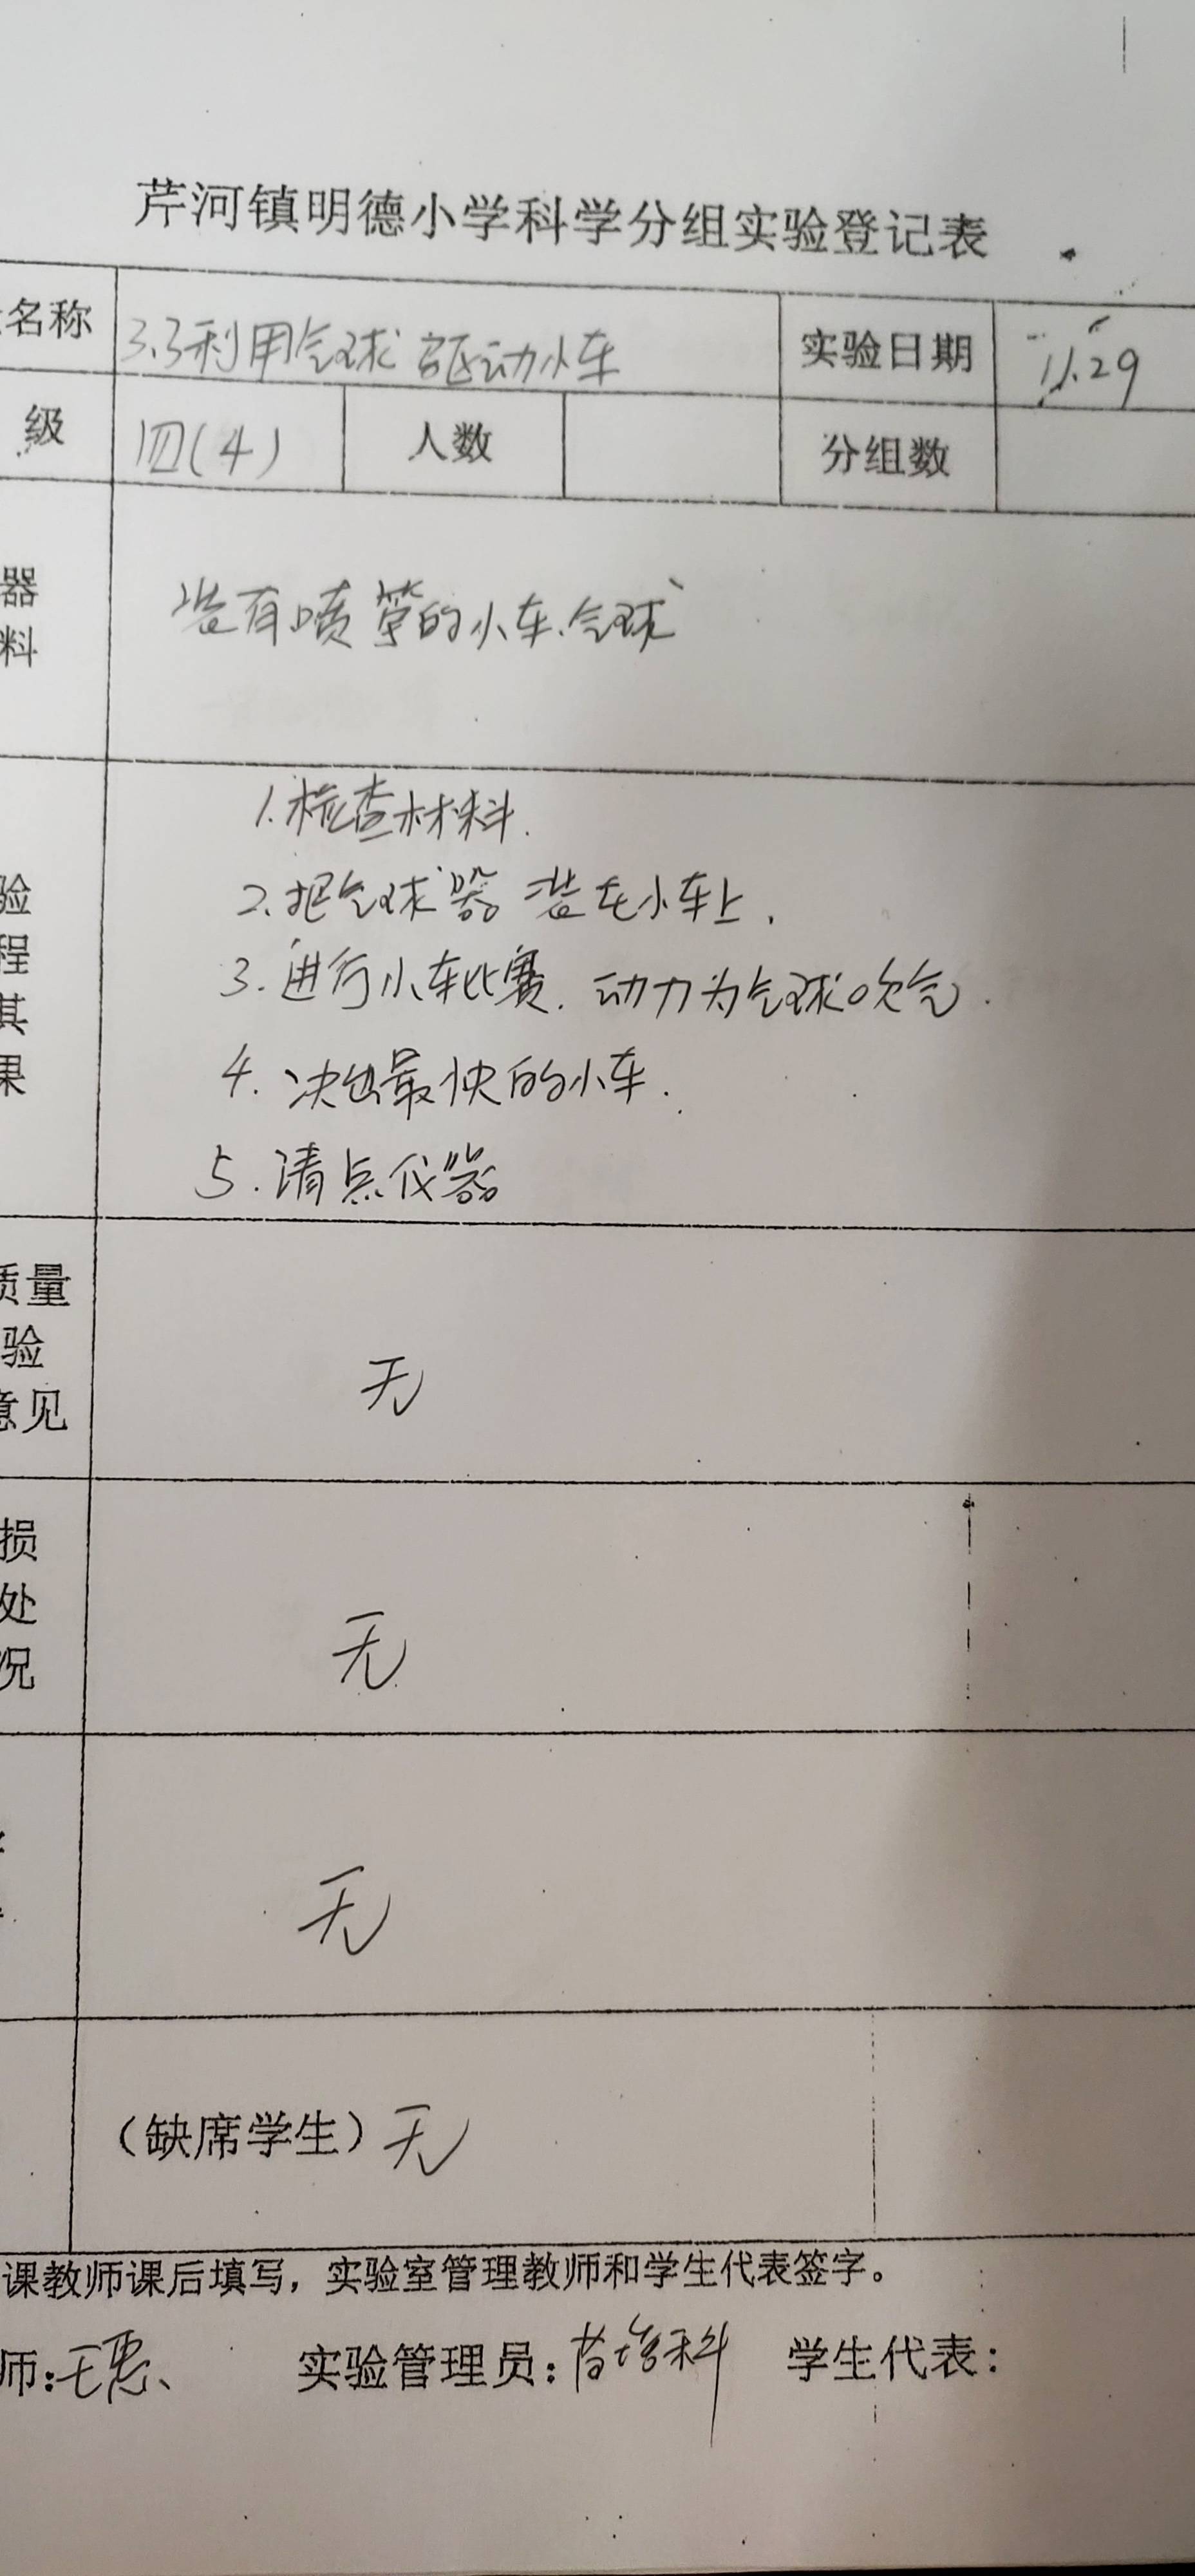 芹河镇明德小学科学分组实验登记表
名称 3.3利用气球驱动小车 实验日期 11.29
级 四(4) 人数 分组数
器
料
装有喷管的小车、气球
1.检查材料.
2.把气球器装在小车上.
3.进行小车比赛.动力为气球吹气.
4.决出最快的小车.
5.清点仪器
验
程
其
果
质量
验
意见
无
损
处
况
无
无
(缺席学生)无
课教师课后填写，实验室管理教师和学生代表签字。
师: 实验管理员: 学生代表: